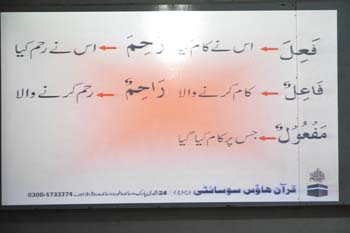 فَعِلَ ← اس نے کام کیا رَحِمَ ← اس نے رحم کیا
فَاعِلٌ ← کام کرنے والا رَاحِمٌ ← رحم کرنے والا
مَفْعُوْلٌ ← جس پر کام کیا گیا
قرآن ہاؤس سوسائٹی 0300-4733774